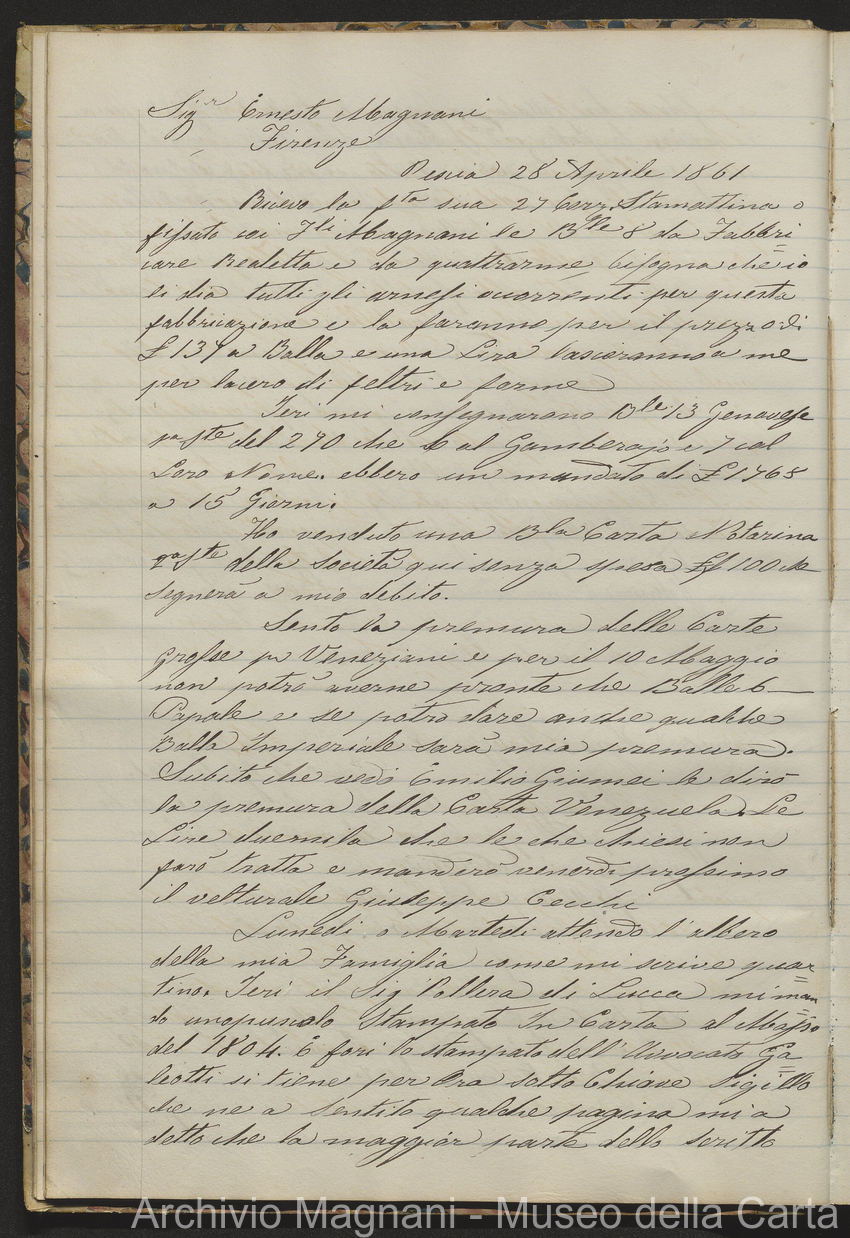 Sigr Ernesto Magnani
Firenze
Pescia 28 Aprile 1861
Ricevo la pta sua 27 Corr. Stamattina o
fissato coi Fli Magnani le Blle 8 da Fabbri=
care Realetta e da quattrarme, bisogna che io
li dia tutti gli arnesi ocorrenti per questa
fabbricazione e la faranno per il prezzo di
£ 134 a Balla e una Lira lascieranno a me
per lacero di feltri e forme
Ieri mi consegnarono Ble 13 Genovese
pa ste del 290 che 6 al Gamberajo e 7 col
Loro Nome. ebbero un mandato di £ 1768
a 15 Giorni.
Ho venduto una Bla Carta Marina
2a ste della Società qui senza spesa £ 100 che
segnerà a mio debito.
Sento la premura delle Carte
grosse pr Veneziani e per il 10 Maggio
non potrò averne pronte che Balle 6
Papale e se potrò dare anche qualche
Balla Imperiale sarà mia premura.
Subito che vedo Emilio Giumei le dirò
la premura della Carta Venezuela. Le
Lire duemila che le che chiesi non
farò tratta e manderò venerdi prossimo
il vetturale Giuseppe Cecchi
Lunedi o Martedi attendo l'albero
della mia Famiglia come mi scrive quar=
tino. Ieri il Sig Pollera di Lucca mi man=
do unopuscolo Stampato In Carta al Masso
del 1804. E fori lo stampato dell'Avvocato Ga=
leotti si tiene per Ora sotto Chiave Sigillo
che ne a sentito qualche pagina mi a
detto che la maggior parte dello scritto
Archivio Magnani - Museo della Carta